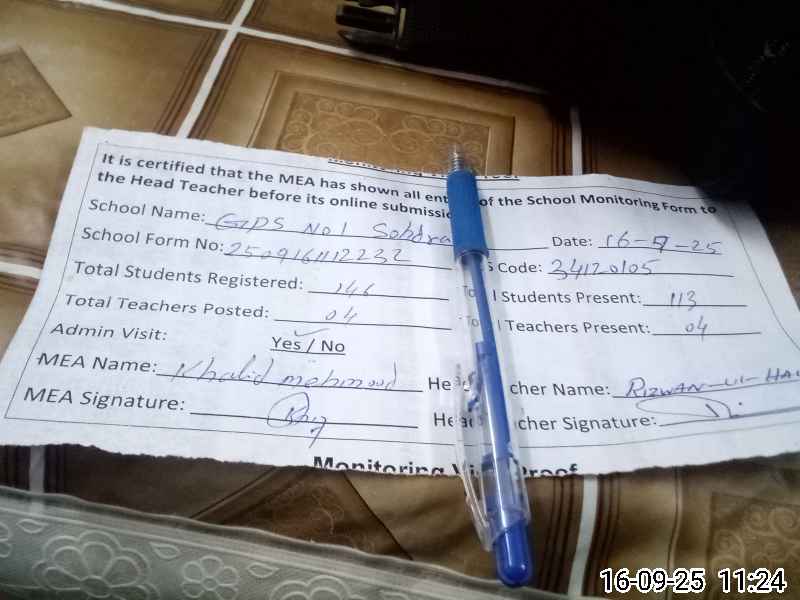 It is certified that the MEA has shown all of the School Monitoring Form to
the Head Teacher before its online submissi
School Name: GPS No 1 Sohdra Date: 16-9-25
School Form No: 2509161112232 S Code: 34120105
Total Students Registered: 146 l Students Present: 113
Total Teachers Posted: 04 l Teachers Present: 04
Admin Visit: Yes / No
MEA Name: Khalid mehmood He cher Name: RIZWAN-UL-HA
MEA Signature: Head cher Signature:
Monitoring Vi Proof
16-09-25 11:24